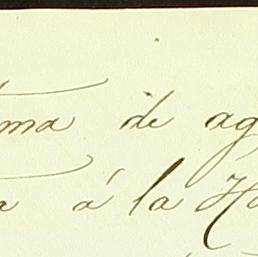 ma de ag
a á la Ha